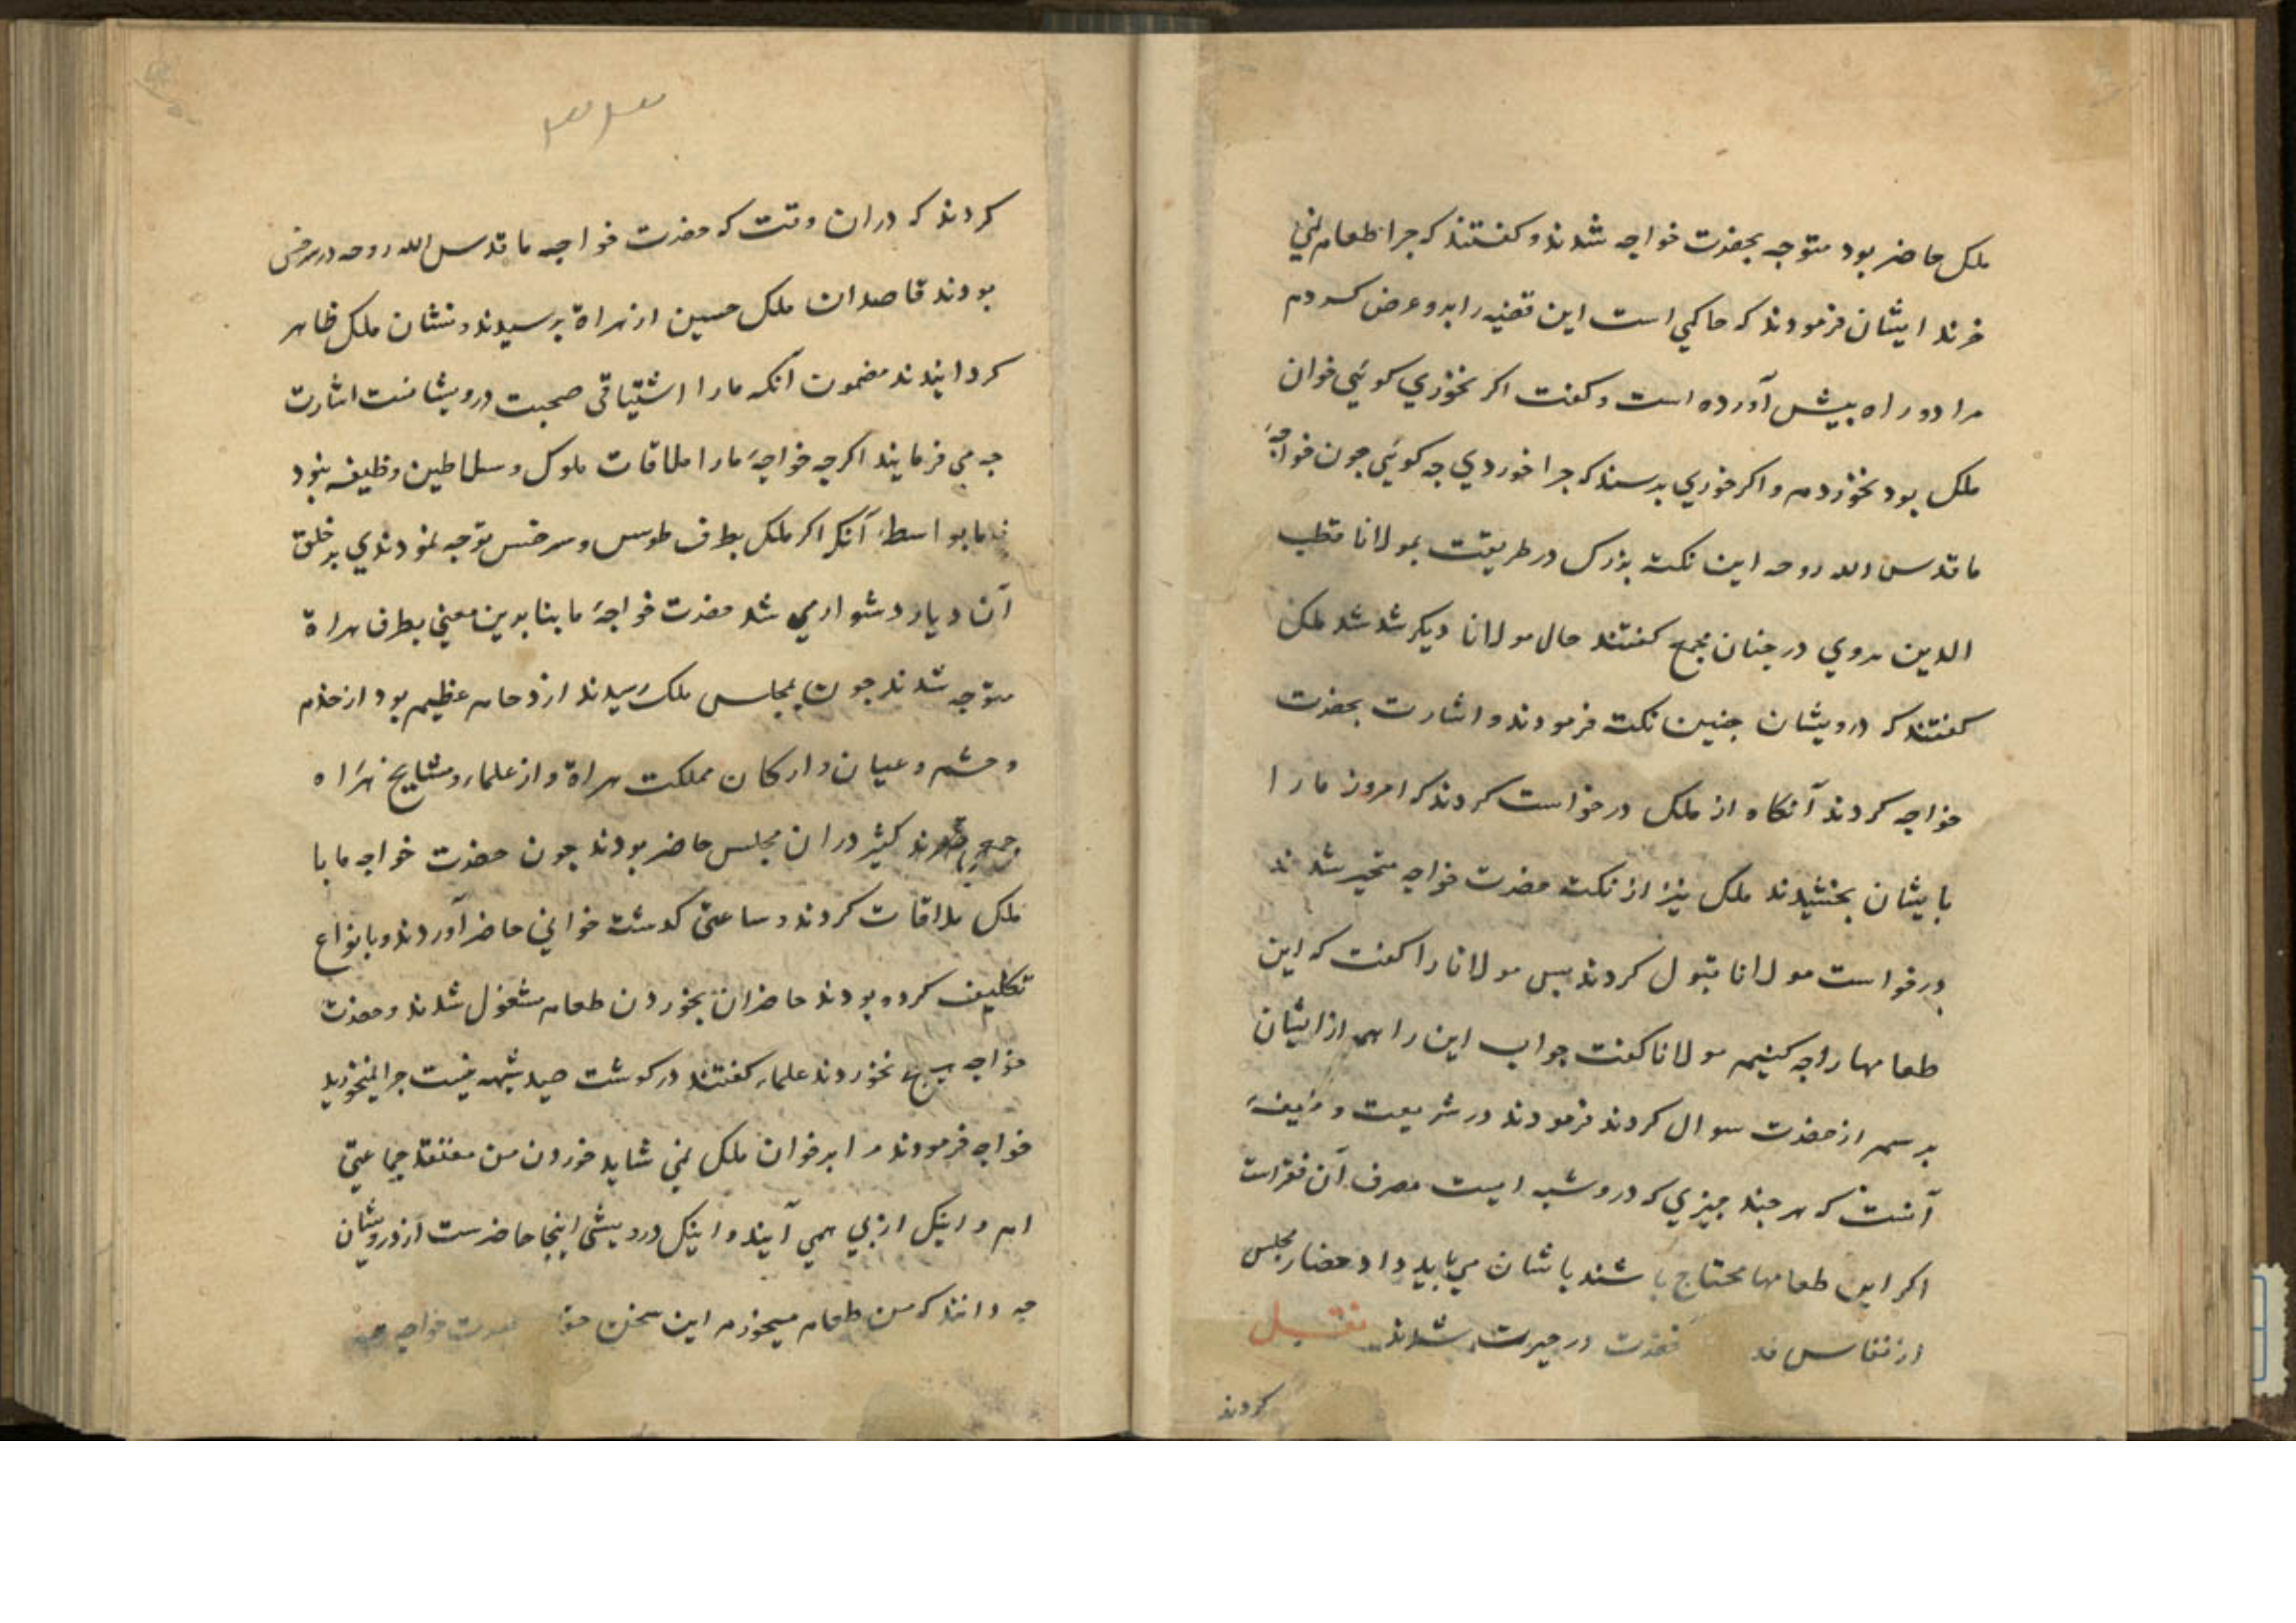 ملک حاضر بود متوجه بحضرت خواجه شدند و کفتند که جرا طعام نمي
خرند ایشان فرمودند که حاکمي است این قضیه را برو عرض کردم
مرا دو راه بیش آورده است و کفت اکر نخوري کوئي خوان
ملک بود نخوردم و اکر خوري برسند که جرا خوردي جه کوئي جون خواجهٔ
ما قدس الله روحه این نکته بزرک در طریقت بمولانا قطب
الدین هروي در جنان مجمع کفتند حال مولانا دیکر شد شد ملک
کفتند که درویشان جنین نکته فرمودند و اشارت بحضرت
خواجه کردند آنکاه از ملک درخواست کردند که امروز ما را
بایشان بخشیدند ملک نیز از نکته حضرت خواجه متحیر شدند
درخواست مولانا قبول کردند بس مولانا را کفت که این
طعامها را جه کنیم مولانا کفت جواب این را هم از ایشان
برسم از حضرت سوال کردند فرمودند در شریعت وظیفهٔ
آنست که هر جند جیزي که درو شبه ایست مصرف آن فقراست
اکر این طعامها محتاج باشند باشان مي باید داد حضار مجلس
از نفاس حضرت در حیرت شدند نقل
کردند
کردند که دران وقت که حضرت خواجه ما قدس الله روحه در سرخس
بودند قاصدان ملک حسین از هراة برسیدند و نشان ملک ظاهر
کردانیدند مضمون آنکه ما را اشتیاقی صحبت درویشانست اشارت
جه مي فرمایند اکرجه خواجهٔ ما را ملاقات ملوک و سلاطین وظیفه نبود
اما بواسطهٔ آنکه اکر ملک بطرف طوس و سرخس توجه نمودندي بر خلق
آن دیار دشوار مي شد حضرت خواجهٔ ما بنا بدین معني بطرف هراة
متوجه شدند جون بمجلس ملک رسیدند ازدحام عظیم بود از خدم
و حشم و عیان و ارکان مملکت هراة و از علماء و مشایخ هراه
کثیر دران مجلس حاضر بودند جون حضرت خواجه ما با
ملک ملاقات کردند و ساعتی کدشت خواني حاضر آوردند و بانواع
تکلیف کرده بودند حاضران بخوردن طعام مشغول شدند و حضرت
خواجه هیج نخوردند علماء کفتند در کوشت صید شبهه نیست جرا نمیخورید
خواجه فرمودند مرا بر خوان ملک نمي شاید خوردن من معتقد جماعتي
ام و اینک از بي همي آیند و اینک درویشی اینجا حاضرست از درویشان
جه دانند که من طعام میخورم این سخن حضرت خواجه